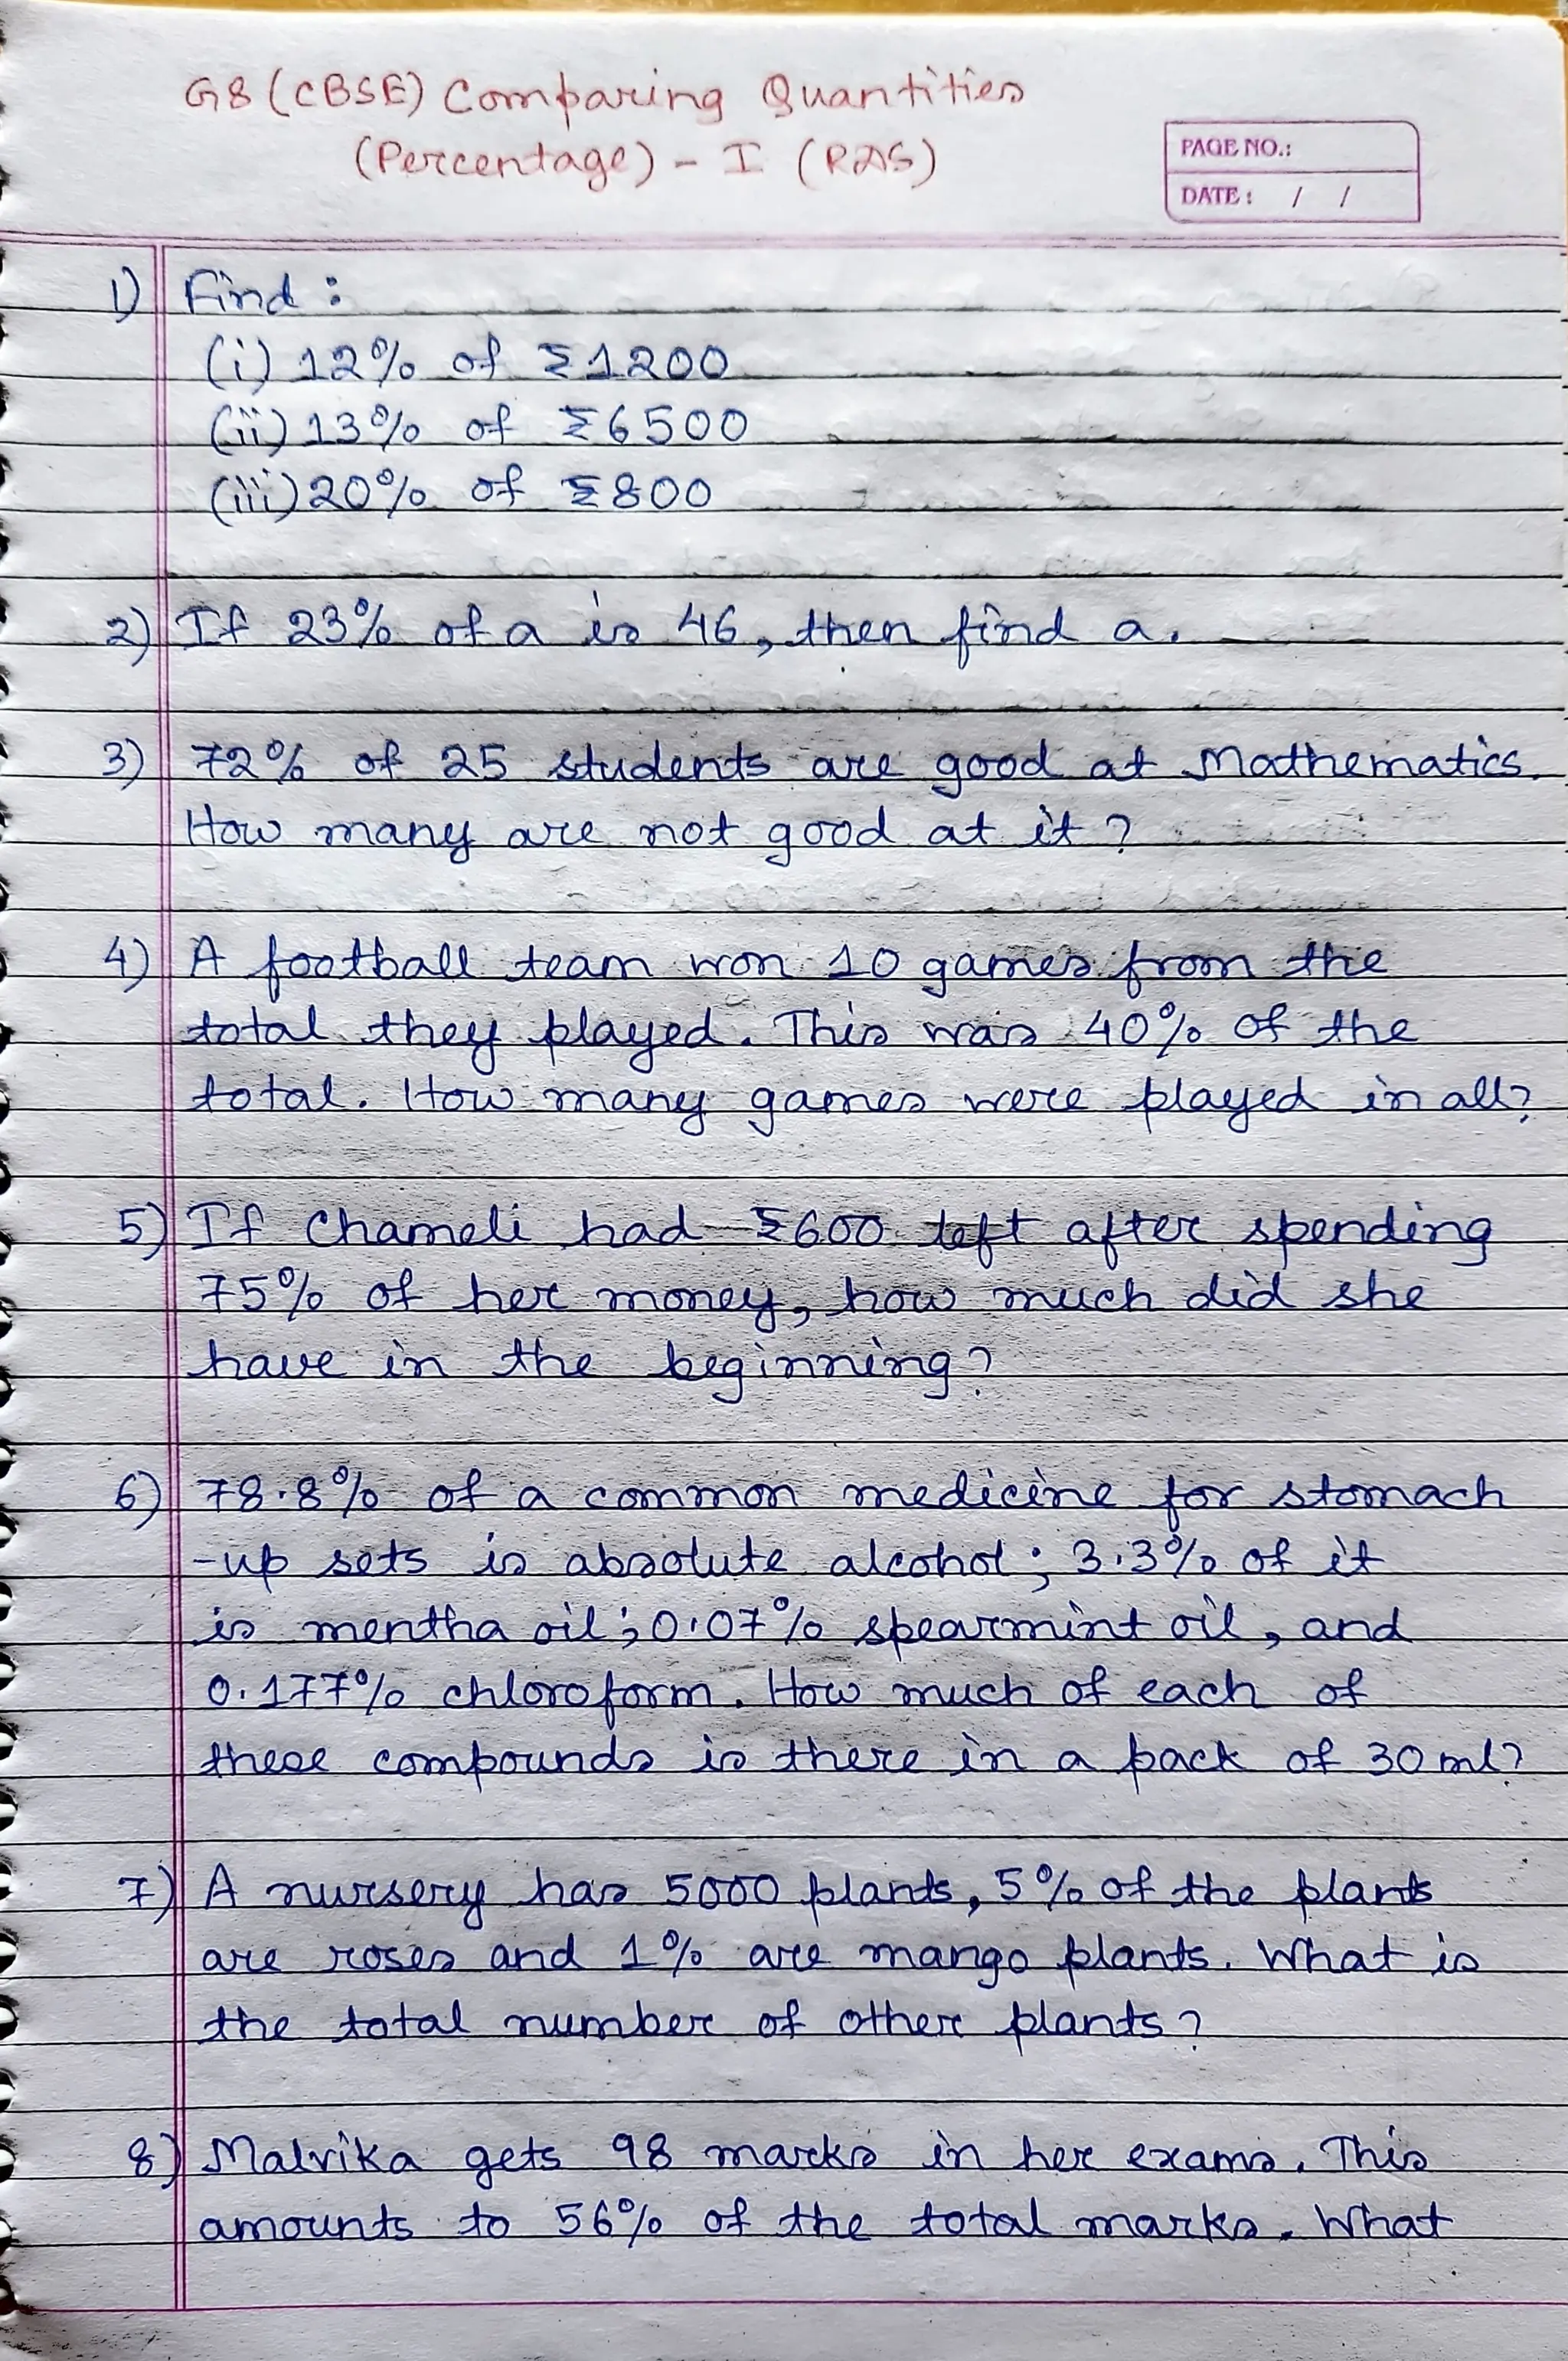 G8 (CBSE) Comparing Quantities
(Percentage) - I (RAS)
PAGE NO.:
DATE: / /
1) Find :
(i) 12% of ₹1200
(ii) 13% of ₹6500
(iii) 20% of ₹800
2) If 23% of a is 46, then find a.
3) 72% of 25 students are good at Mathematics.
How many are not good at it?
4) A football team won 10 games from the
total they played. This was 40% of the
total. How many games were played in all?
5) If Chameli had ₹600 left after spending
75% of her money, how much did she
have in the beginning?
6) 78.8% of a common medicine for stomach
-up sets is absolute alcohol; 3.3% of it
is mentha oil; 0.07% spearmint oil, and
0.177% chloroform. How much of each of
these compounds is there in a pack of 30 ml?
7) A nursery has 5000 plants, 5% of the plants
are roses and 1% are mango plants. What is
the total number of other plants?
8) Malvika gets 98 marks in her exams. This
amounts to 56% of the total marks. What